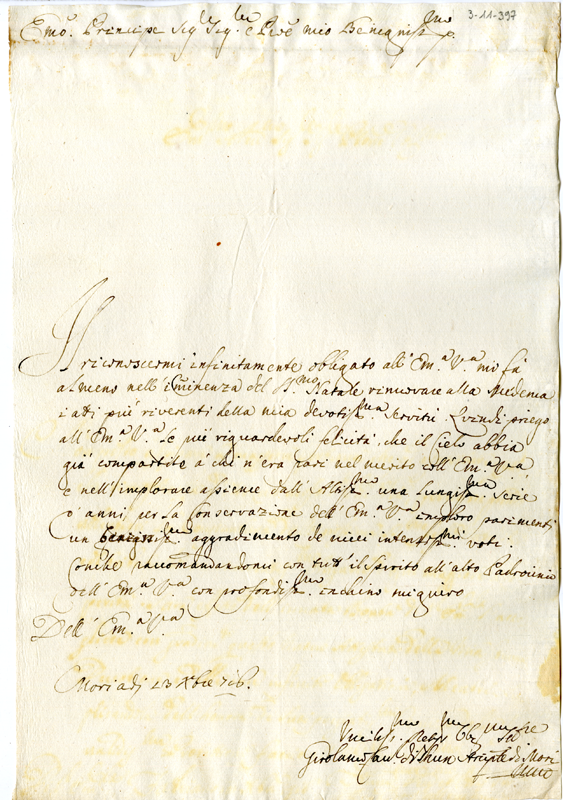 3-11-397
Emo. Principe Sig.r Sig.r e Prõe mio Benegnissmo.
Il riconoscermi infinitamente obligato all' Em.a V.a mi fà
almeno nell' iminenza del SSmo Natale rinuovare alla Medema
i atti più riverenti della mia devotissma. servitù. Quindi priego
all' Em.a V.a le più riguardevoli felicità, che il Cielo abbia
già compartito à chi n'era pari nel merito coll' Em.a V.a
e nell' implorare assieme dall' Altissmo. una lungissma. serie
d' anni per la conservazione dell' Em.a V.a imploro parimenti
un benigmo. aggradimento de miei intensissmi. voti.
Con che raccomandandomi con tutt' il spirito all' alto Padrocinio
dell' Em.a V.a con profondissmo. inchino mi
Dell' Em.a V.a
Mori adj 23 Xbre 716.
Umilissmo. Obmo
Girolamo Cav. di Thun Arciprete di Mori